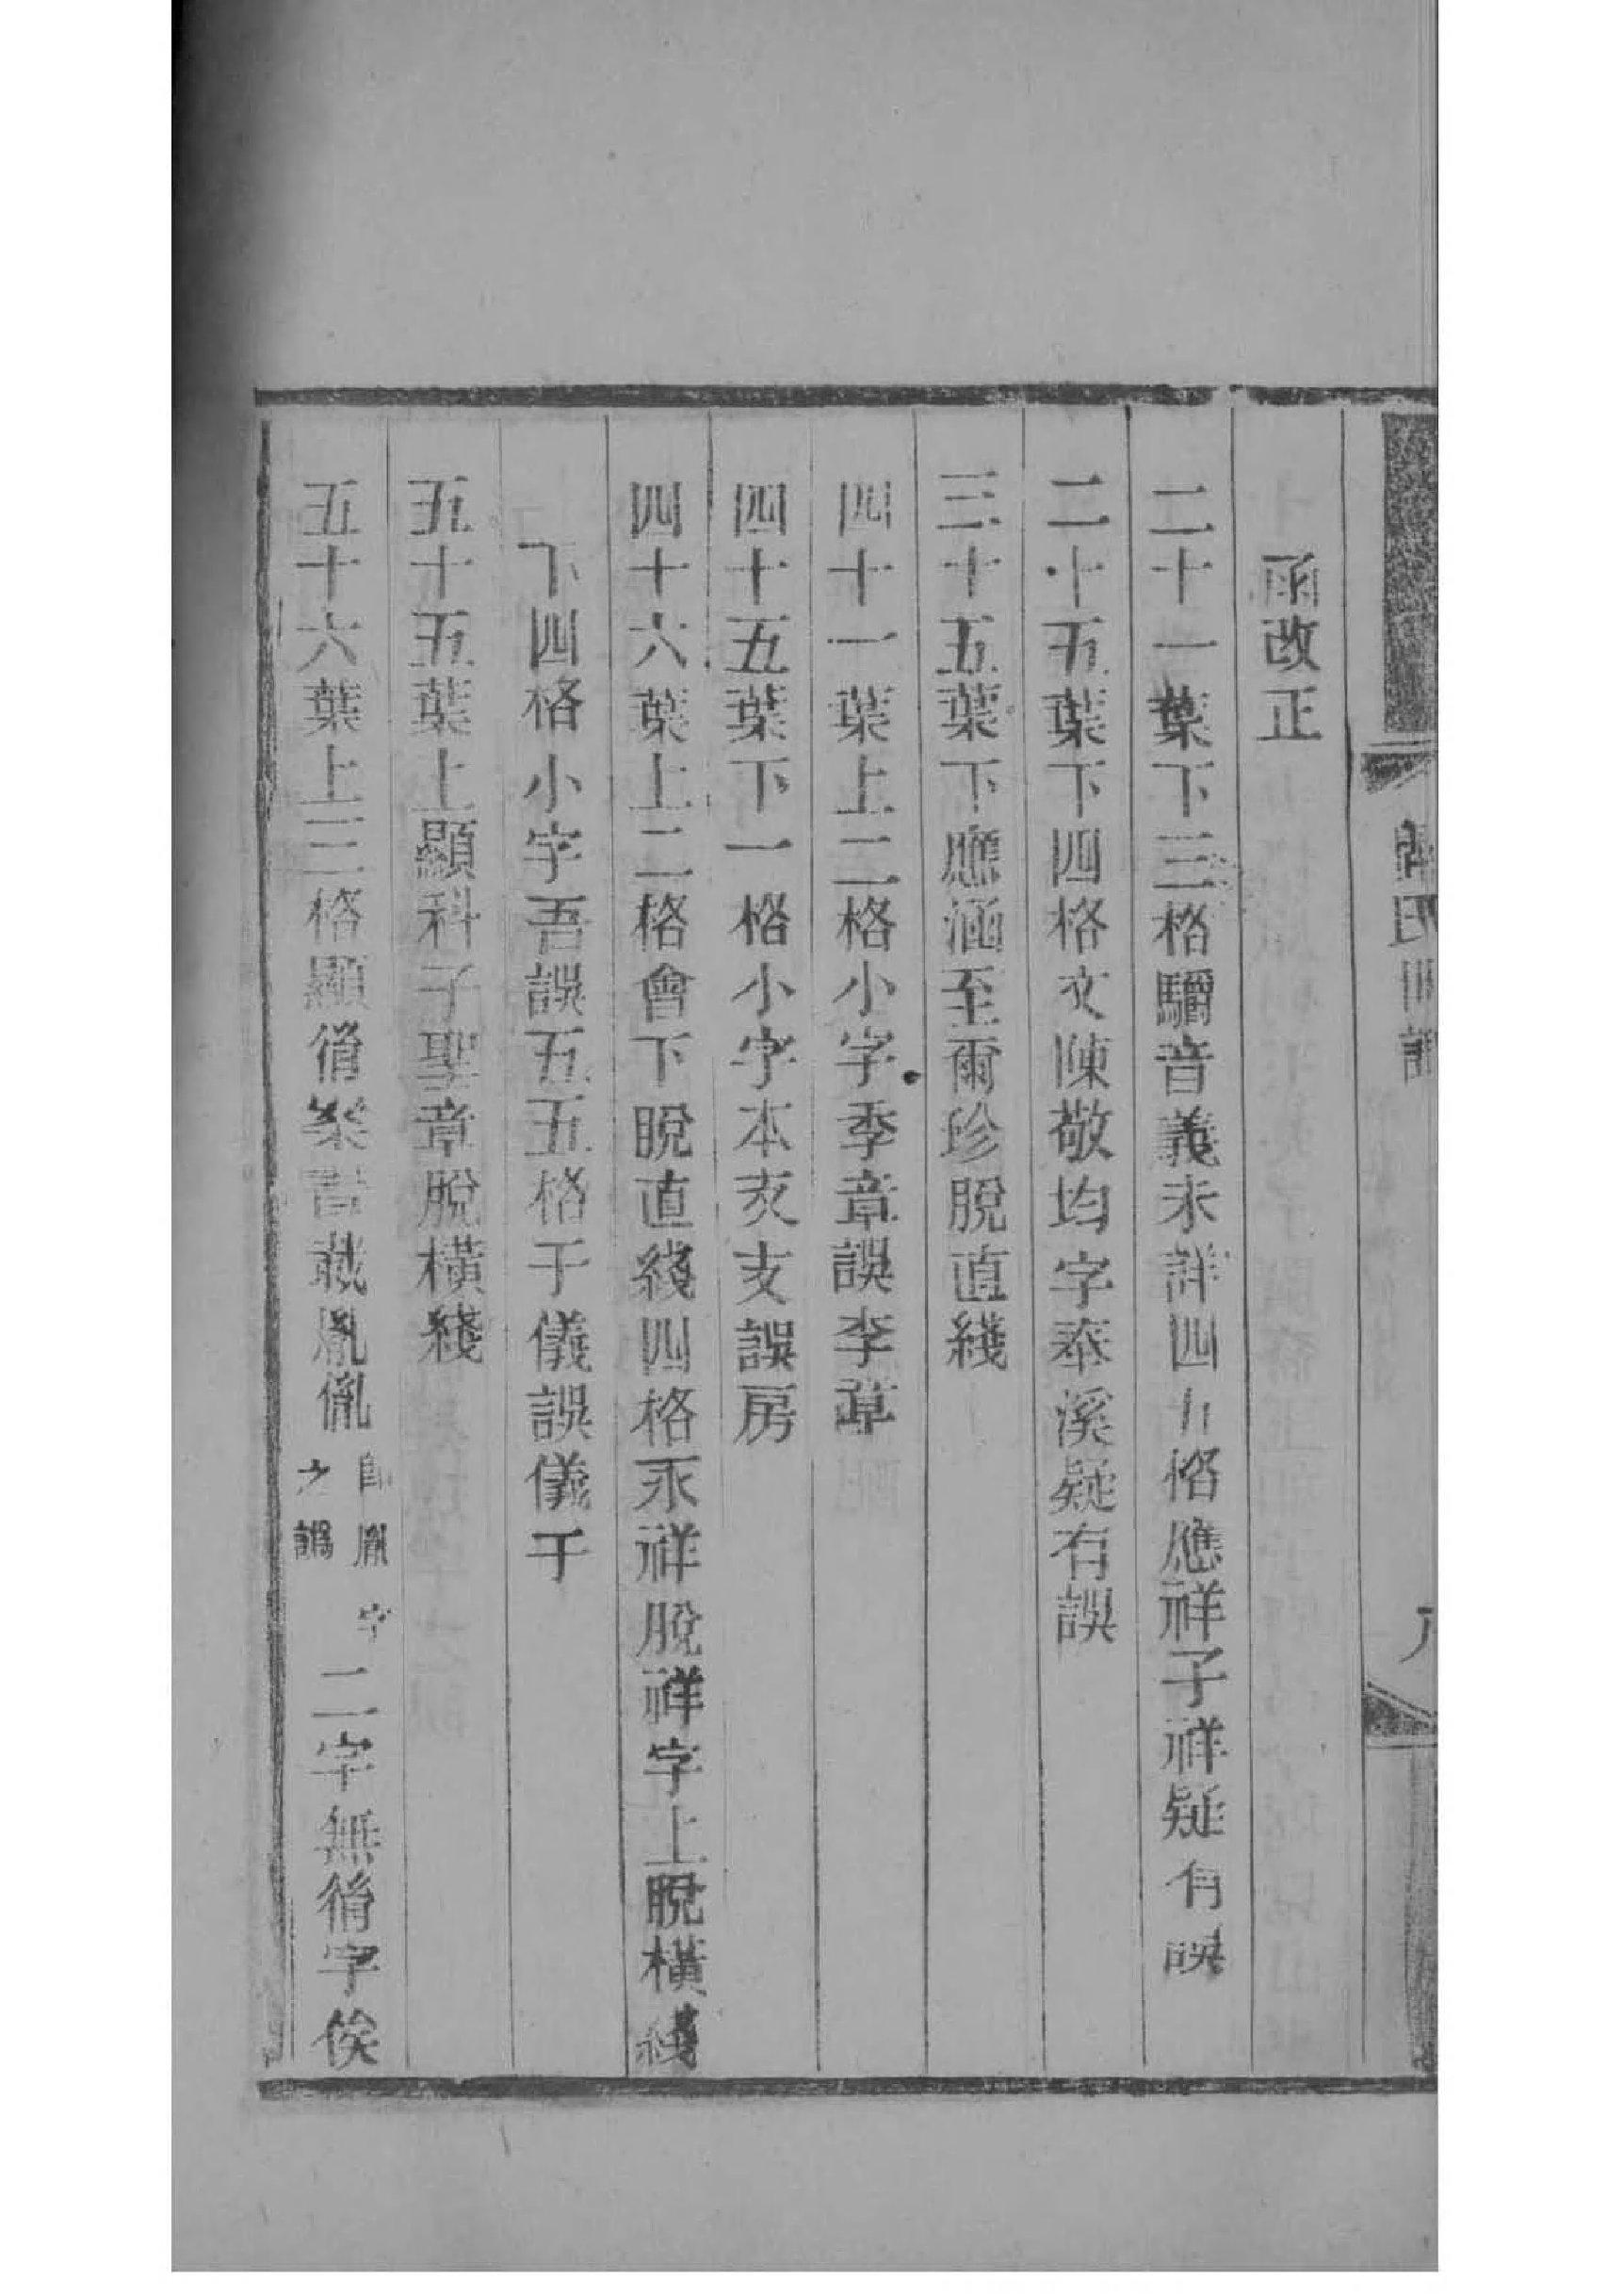 函改正
二十一葉下三格驓音義未詳四五格應祥子祥疑有誤
二十五葉下四格文陳敬均字奉溪疑有誤
三十五葉下應涵至爾珍脫直綫
四十一葉上二格小字季章誤李章
四十五葉下一格小字本支誤房
四十六葉上二格會下脫直綫四格永祥脫祥字上脫橫綫
下四格小字吾誤五五格于儀誤儀于
五十五葉上顯科子聖章脫橫綫
五十六葉上三格顯脩案書載胤㣧
卽胤字
之譌
二字無脩字俟
氏
八